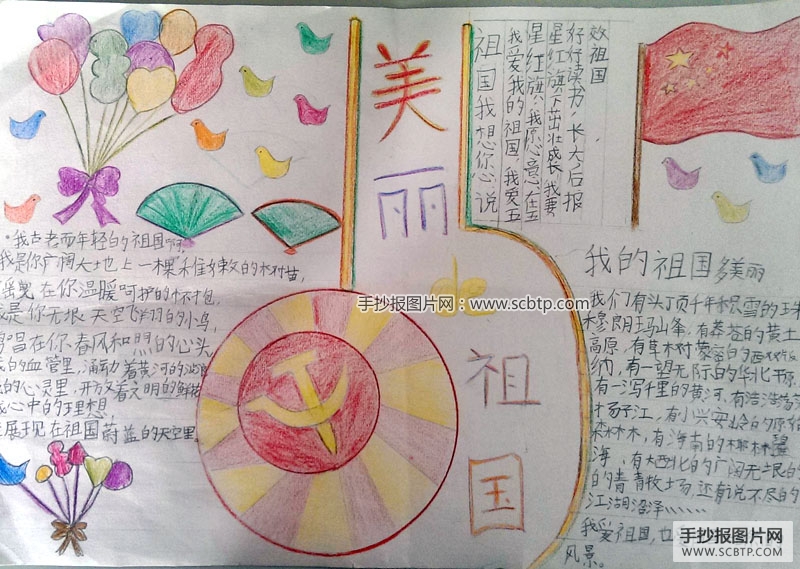 美
丽
de
祖
国
祖国我想你心说
我爱我的祖国,我爱五
星红旗,我愿意在五
星红旗下茁壮成长,我要
好好读书,长大后报
效祖国
·我古老而年轻的祖国啊
我是你广阔大地上一棵稚嫩的树苗,
摇曳在你温暖呵护的怀抱
是你无垠天空飞翔的小鸟,
唱在你春风和煦的心头
的血管里,涌动着黄河的波
的心灵里,开放着文明的鲜花
心中的理想,
展现在祖国蔚蓝的天空里
我的祖国多美丽
我们有头顶千年积雪的
穆朗玛峰,有苍苍的黄土
高原,有草木蒙密的西双版
纳,有一望无际的华北平原,
有一泻千里的黄河,有浩浩荡荡
扬子江,有小兴安岭的原始
森林,有海南的椰林
海,有大西北的广阔无垠的
的青青牧场,还有说不尽的
江湖沼泽、、、、、、
我爱祖国,也
风景。
手抄报图片网:www.scbtp.com
手抄报图片网
WWW.SCBTP.COM